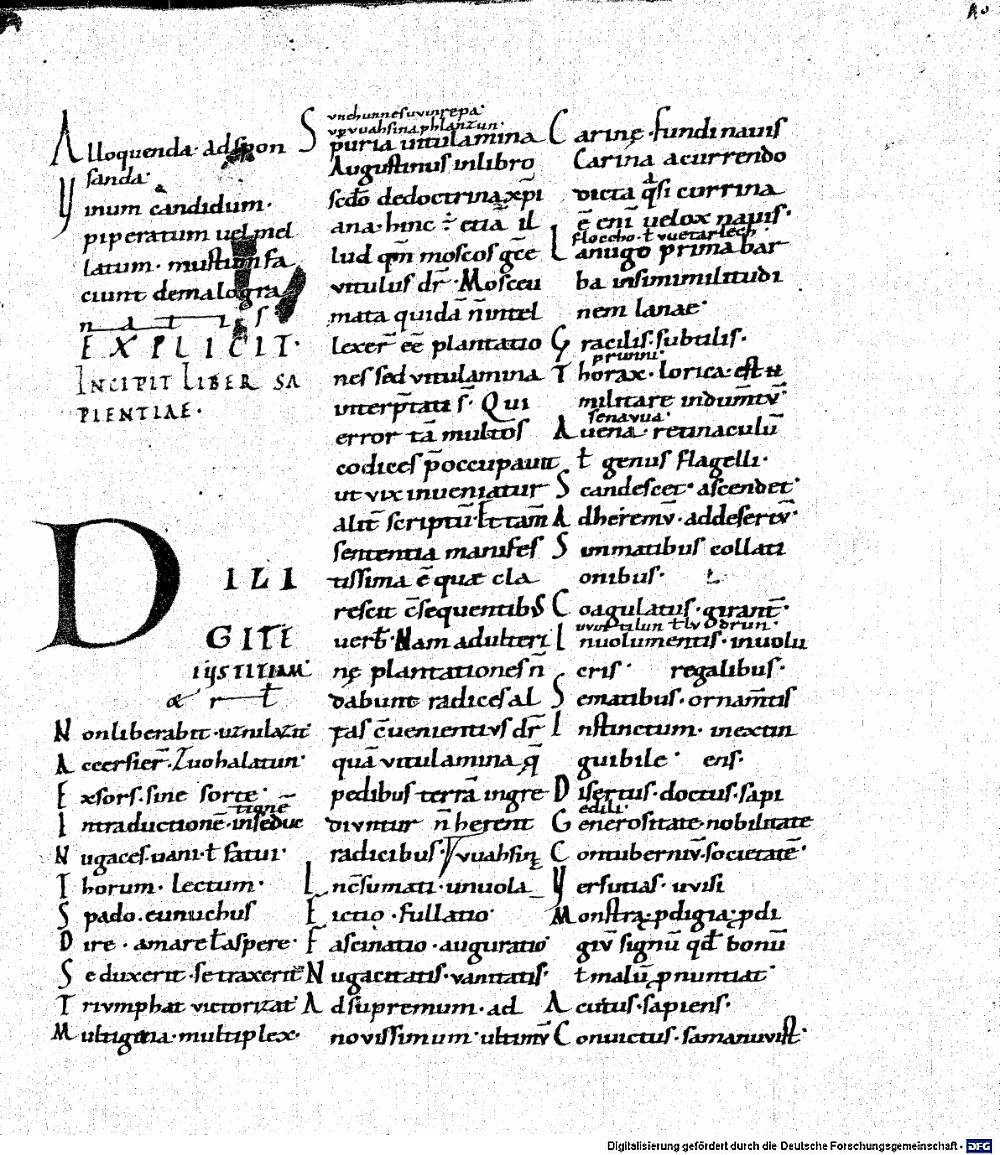 Alloquenda· adspon
sanda·
Vinum candidum·
piperatum uel mel
latum· mustum fa
ciunt demalogra
natis
EXPLICIT·
INCIPIT LIBER SA
PIENTIAE·
DILI
GITE
IUSTITIAM·
& r t
Nonliberabit·
Accersier̄·zuohalatun·
Exsors·sine sorte·
tionē
Intraductionē·inseduc
Nugaces·uani·ł fatui·
Thorum· Lectum·
Spado·eunuchus
Dire·amare ł aspere·
Seduxerit·setraxerit
Triumphat victorizat
Multigena·multiplex·
Spuria uitulamina
Augustinus inlibro
scđo dedoctrina xp̄i
ana·hinc ÷ etiā il
lud qm̄ moscos gr̄ce
vitulus dr̄·Mosceu
mata quidā n̄intel
lexer̄ ee̅ plantatio
nes sed vitulamina
interp̄tati s̄·Qui
error tā multos
codices p̄occupauit
ut vix inueniatur
alit̄ scriptū·Et tam̄
sententia manifes
tissima ē quae cla
rescit c̄sequentibus
uerƀ·Nam adulteri
nę plantationes n̄
dabunt radices al
tas c̄uenientius dr̄
quā vitulamina q̄
pedibus terrā ingre
diuntur n̄ herent
radicibus·vuahsinę
Incōsumati·unuola
Fictio·fullatio·
Fascinatio·auguratio·
Nugacitatis·vanitatis·
Adsupremum·ad
novissimum·ultimū
Carinę·fundi nauis
Carina acurrendo
dicta q̄si currina
ē eni̅ uelox nauis·
floccho·ł vuetarlech·
Lanugo prima bar
ba insimimilitudi
nem lanae·
Gracilis·subtilis·
prunni·
Thorax·lorica·est u
militare indum̄tū·
senavua·
Auena·retinaculū
ł genus flagelli·
Scandescet·ascendet·
Adheremū·addesertū·
Summatibus collati
onibus·
Coagulatus·girant̄·
Inuolumentis·inuolu
cris· regalibus·
Sematibus·ornam̄tis
Instinctum·inextin
guibile· ens·
Disertus·doctus·sapi
edili·
Generositate·nobilitate
Contuberniū·societatē·
Versutias·uvisi
Monstra·p̄digia·p̄di
giū signū qđ bonū
ł malū p̄nuntiat·
Acutus·sapiens·
Conuictus·samanuvist·
Digitalisierung gefördert durch die Deutsche Forschungsgemeinschaft - DFG